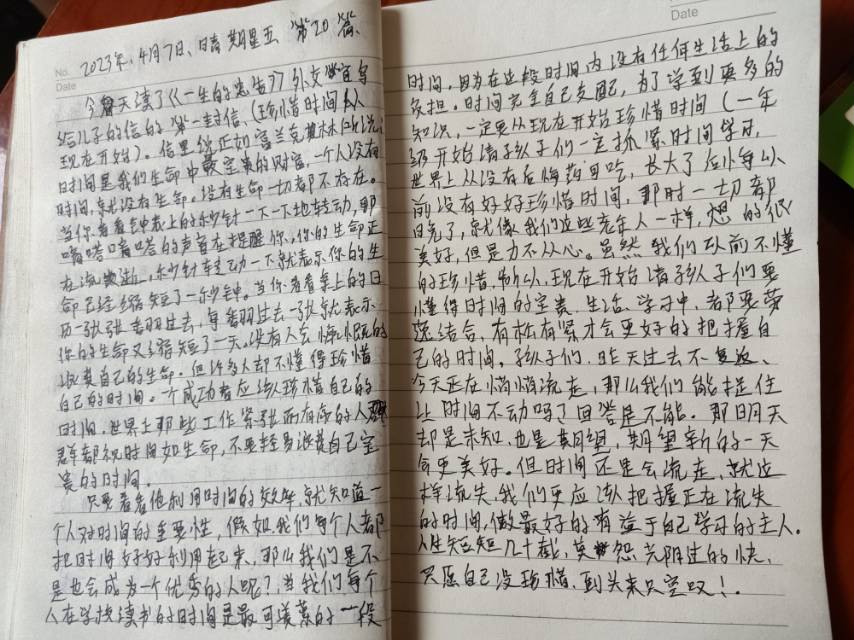 No.
Date
2023年.4月7日、晴 期星五 第20篇、
今天读了《一生的忠告》外交官写
给儿子的信的第一封信、(珍惜时间从
现在开始)。信里说正如富兰克林所说:
时间是我们生命中最宝贵的财富,一个人没有
时间,就没有生命。没有生命一切都不存在。
当你看看钟表上的秒针一下一下地转动,那
嘀嗒嘀嗒的声音在提醒你,你的生命正
在流逝,秒针转动一下就表示你的生
命已经缩短了一秒钟。当你看看桌上的日
历一张张翻过去,每翻过去一张就表示
你的生命又缩短了一天。没有人会慷慨的
浪费自己的生命.但许多人却不懂得珍惜
自己的时间。一个成功者应该珍惜自己的
时间.世界上那些工作紧张而有序的人
群都视时间如生命,不要轻易浪费自己宝
贵的时间.
只要看看他利用时间的效率,就知道一
个人对时间的重要性,假如我们每个人都
把时间好好利用起来,那么我们是不
是也会成为一个优秀的人呢?当我们每个
人在学校读书的时间是最可羡慕的一段
Date
时间,因为在这段时间内没有任何生活上的
负担。时间完全自己支配,为了学到更多的
知识,一定要从现在开始珍惜时间(一年
级开始请孩子们一定抓紧时间学习,
世界上从没有后悔药可吃,长大了后悔以
前没有好好珍惜时间,那时一切都
晚了,就像我们这些老年人一样,想的很
美好,但是力不从心。虽然我们以前不懂
的珍惜,所以,现在开始请孩子们要
懂得时间的宝贵.生活、学习中,都要劳
逸结合,有松有紧才会更好的把握自
己的时间,孩子们.昨天过去不复返、
今天正在悄悄流走,那么我们能捉住
让时间不动吗?回答是不能.那明天
却是未知.也是期望,期望新的一天
会更美好。但时间还是会流走,就这
样流失.我们更应该把握正在流失
的时间,做最好的有益于自己学习的主人.
人生短短几十载,莫怨光阴过的快.
只愿自己没珍惜.到头来只空叹!.